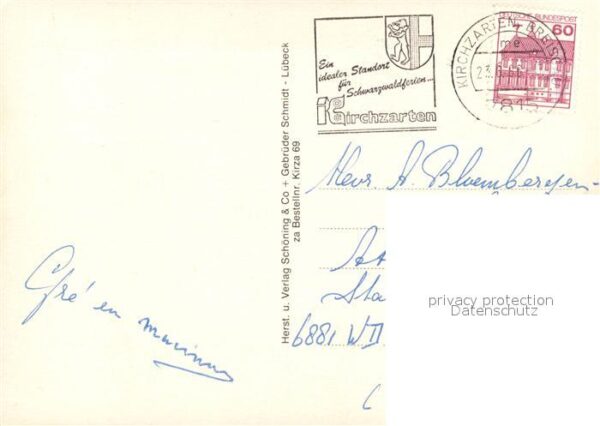 Ein
idealer Standort
für
Schwarzwaldferien...
Kirchzarten
KIRCHZARTEN, BREISG
me
7815
DEUTSCHE BUNDESPOST
60
Herst. u. Verlag Schöning & Co + Gebrüder Schmidt - Lübeck
za Bestellnr. Kirza 69
Gré en marinus
Mevr. A. Bloembergen-
Sta
6881 W
privacy protection
Datenschutz